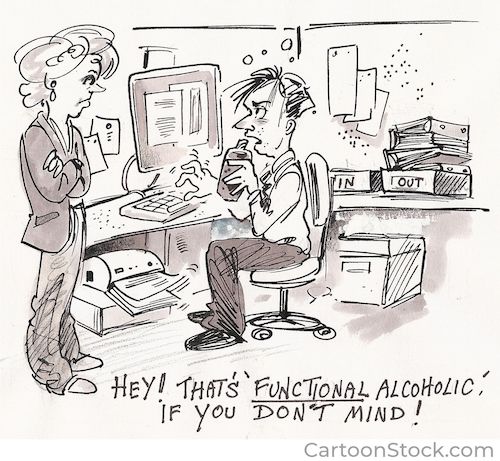 IN
OUT
HEY! THAT'S 'FUNCTIONAL ALCOHOLIC,'
IF YOU DON'T MIND!
CartoonStock.com